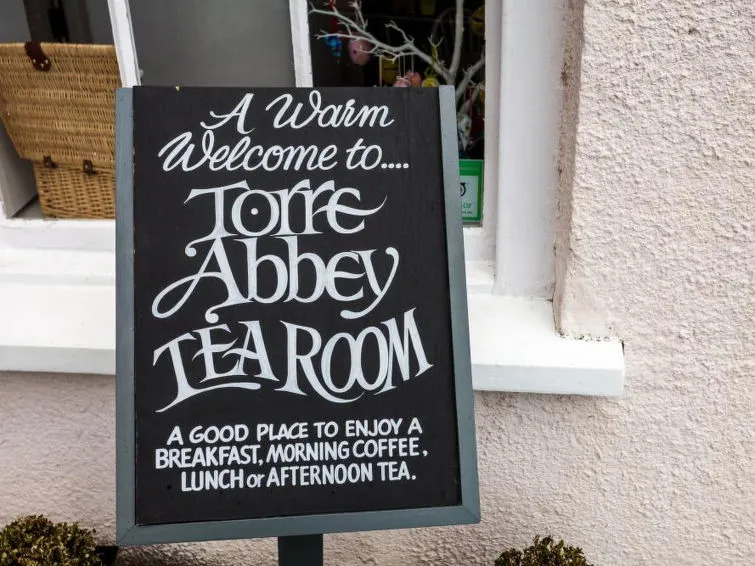 A Warm
Welcome to....
Torre
Abbey
TEA ROOM
A GOOD PLACE TO ENJOY A
BREAKFAST, MORNING COFFEE,
LUNCH or AFTERNOON TEA.